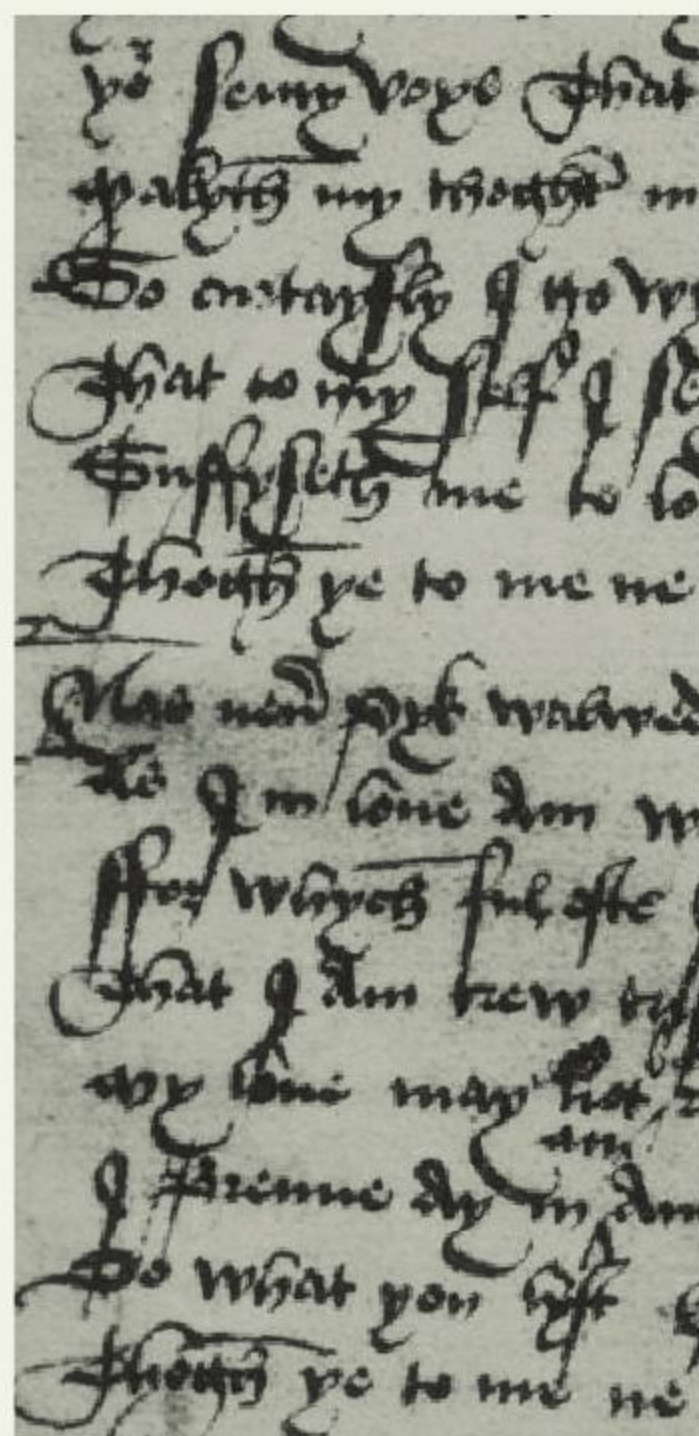 yor semy voys That
Makyth my thoght in
So curtaysly I go wy
That to my self I se
Suffyseth me to lo
Thogh ye to me ne
Nas neuer pyk walwed
As I in loue Am w
ffor whych ful ofte
That I Am trew
My loue may not
I brenne Ay in An
Do what you lyst
Thogh ye to me ne